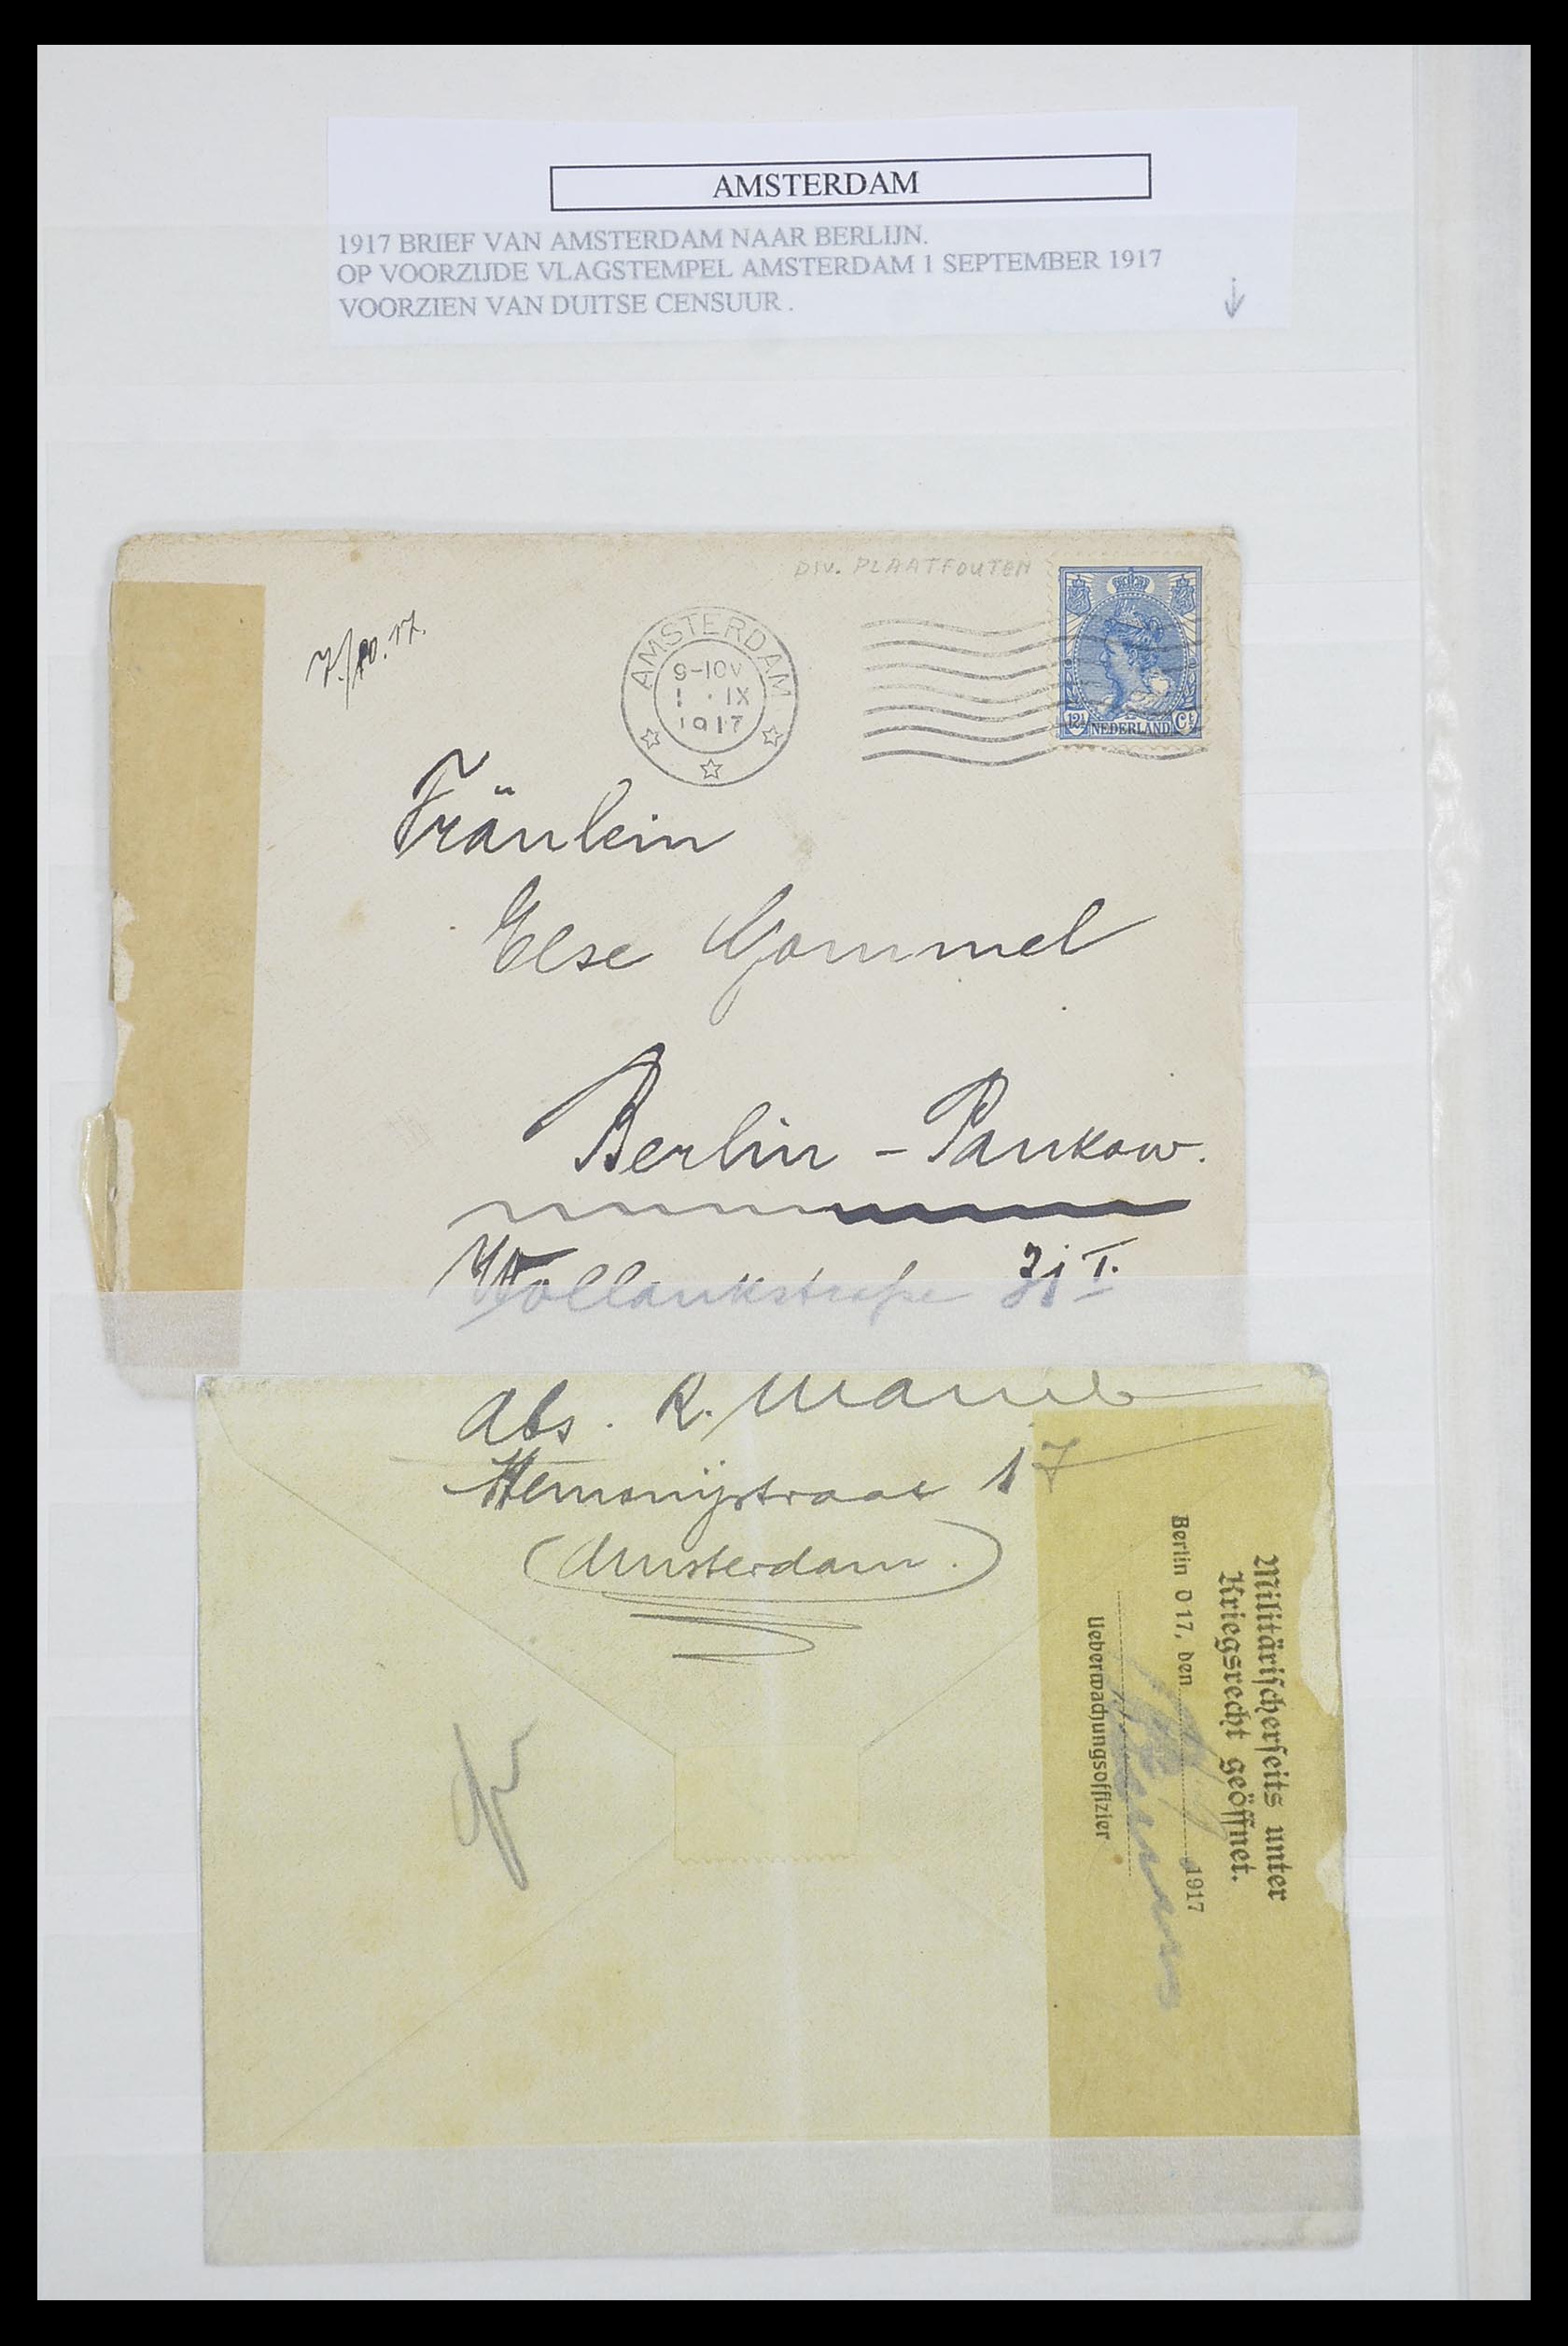 AMSTERDAM
1917 BRIEF VAN AMSTERDAM NAAR BERLIJN.
OP VOORZIJDE VLAGSTEMPEL AMSTERDAM 1 SEPTEMBER 1917
VOORZIEN VAN DUITSE CENSUUR .
DIV. PLAATFOUTEN
7./10.17.
AMSTERDAM
9-10V
1 · IX
1917
12½ NEDERLAND Ct
Fräulein
Else Gommel
Berlin - Pankow.
Wollankstraße I.
Abs. R.
Hemonijstraat 17
(Amsterdam.)
Militärischerseits unter
Kriegsrecht geöffnet.
Berlin O 17, den 1917
Ueberwachungsoffizier